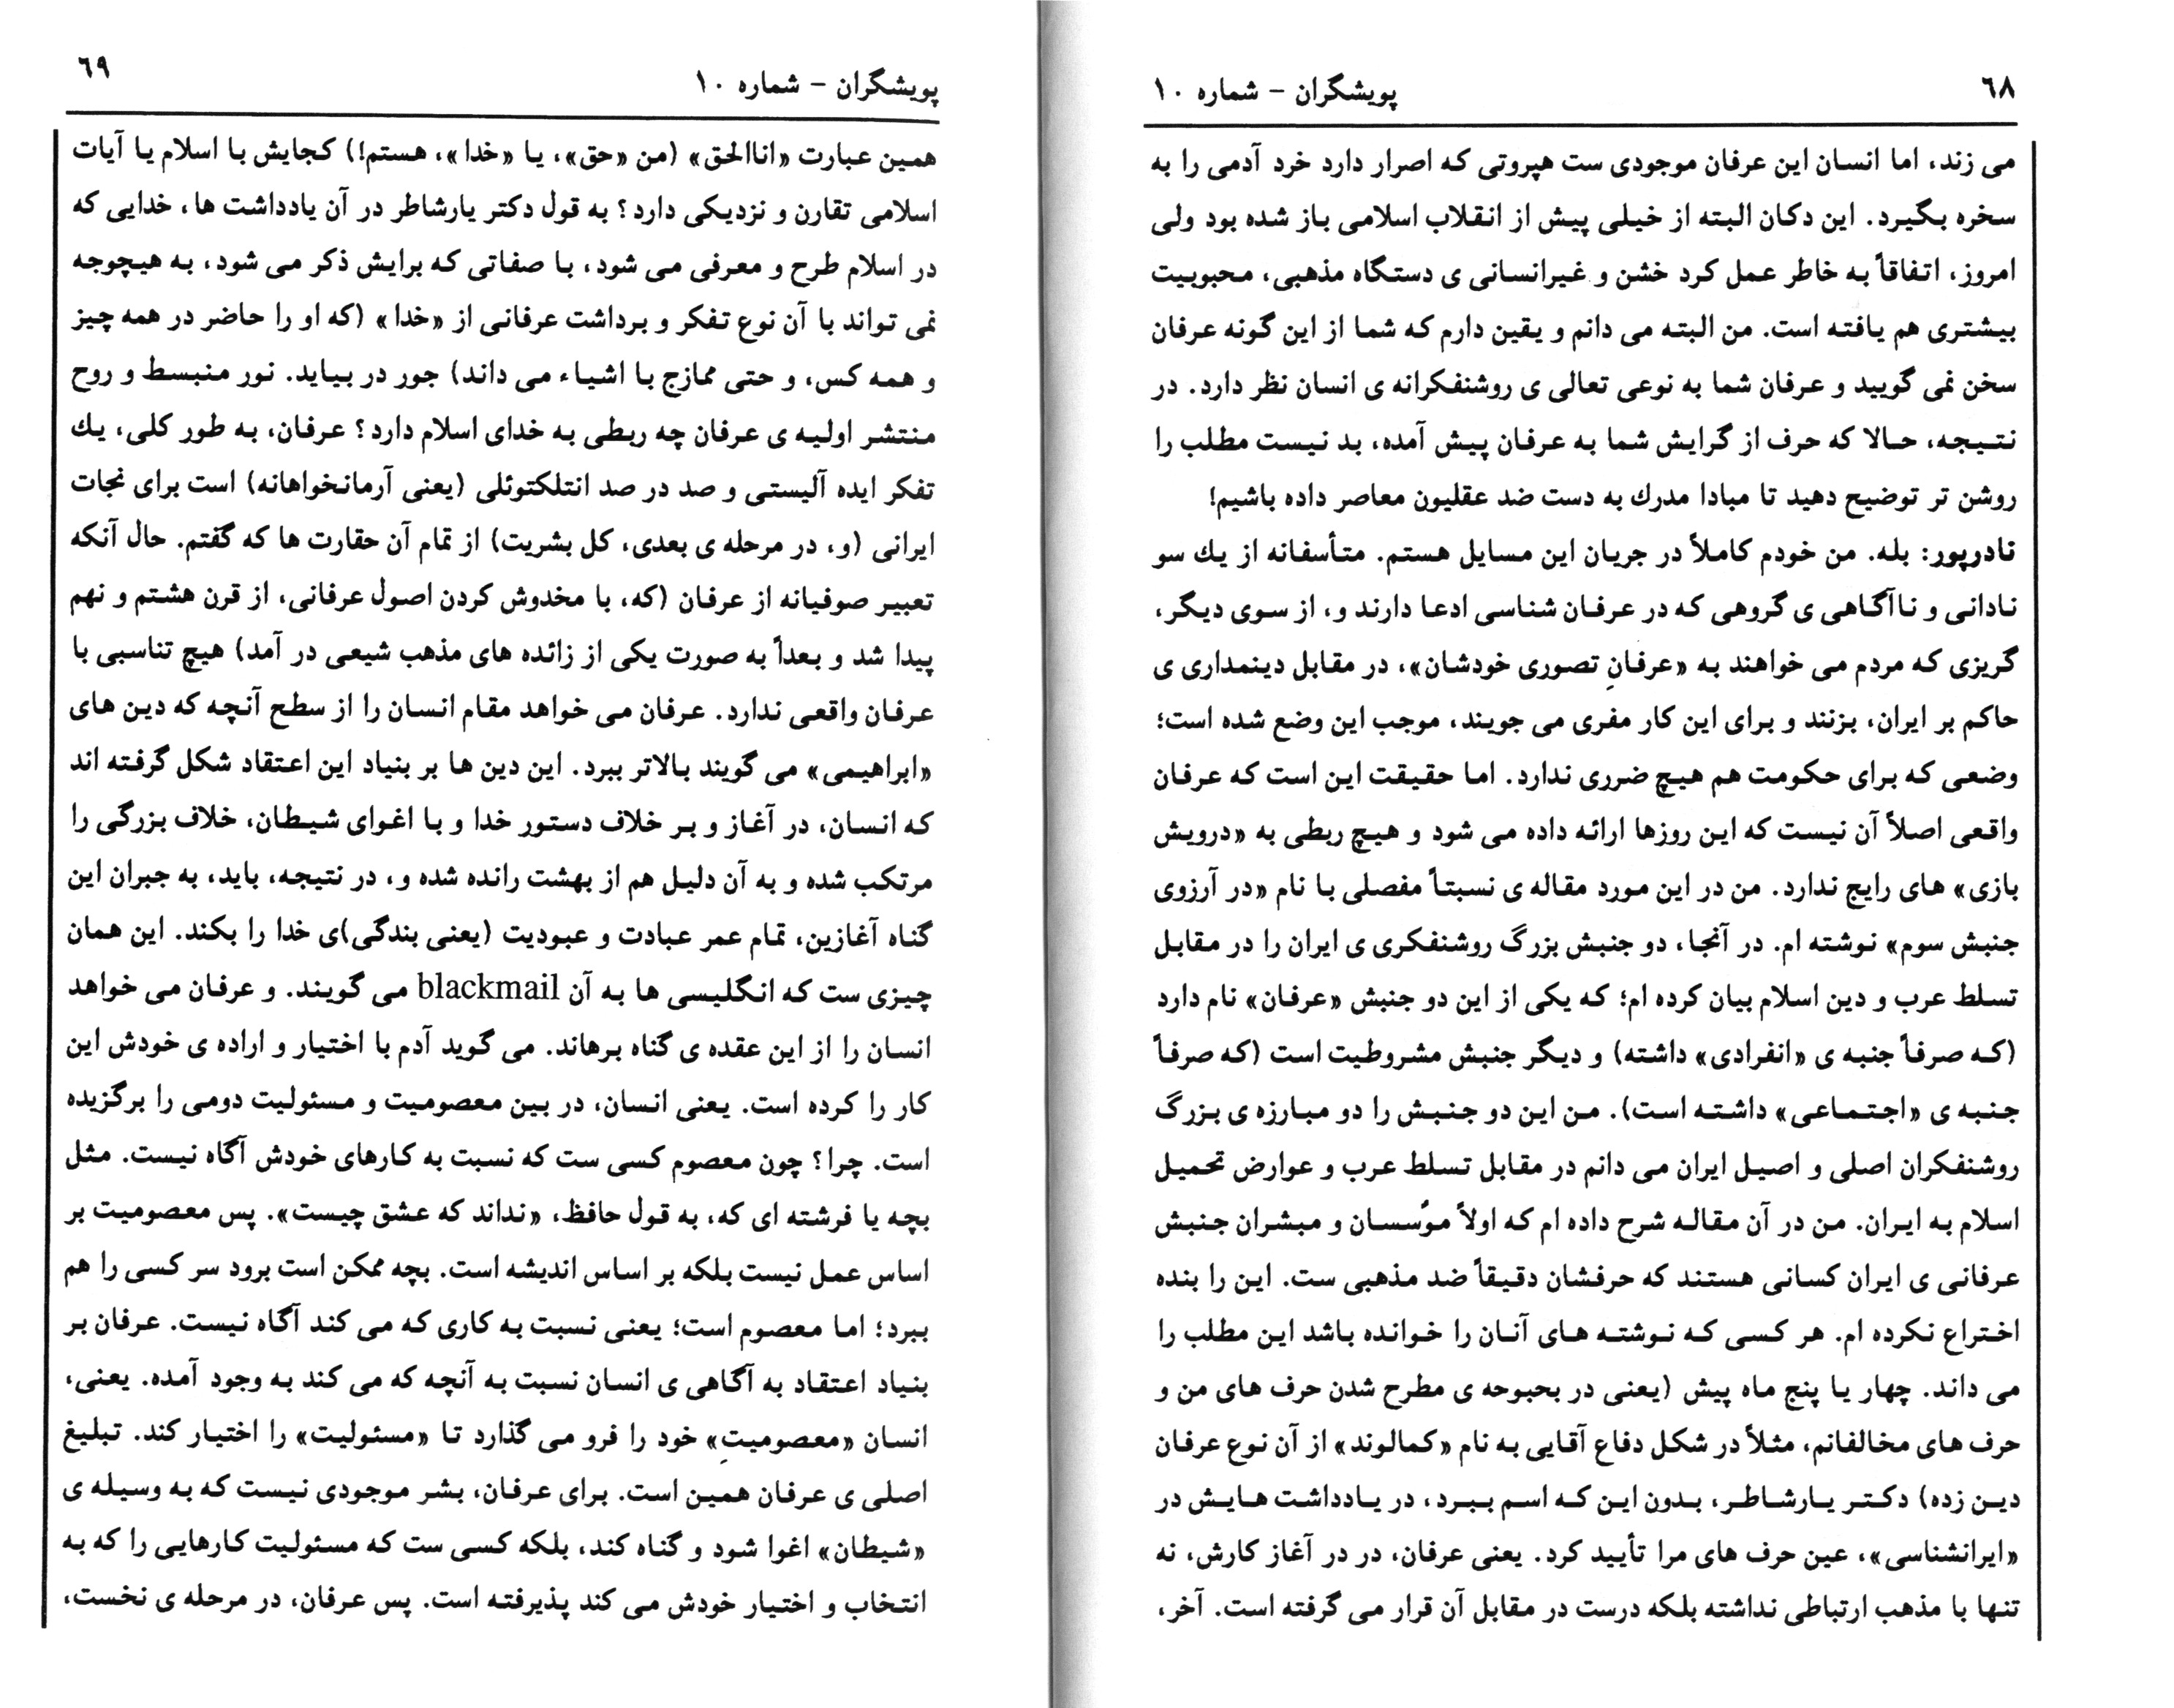 ۶۸
پویشگران – شماره ۱۰
می زند، اما انسان این عرفان موجودی ست هپروتی که اصرار دارد خرد آدمی را به
سخره بگیرد. این دکان البته از خیلی پیش از انقلاب اسلامی باز شده بود ولی
امروز، اتفاقاً به خاطر عمل کرد خشن و غیرانسانی ی دستگاه مذهبی، محبوبیت
بیشتری هم یافته است. من البته می دانم و یقین دارم که شما از این گونه عرفان
سخن نمی گویید و عرفان شما به نوعی تعالی ی روشنفکرانه ی انسان نظر دارد. در
نتیجه، حالا که حرف از گرایش شما به عرفان پیش آمده، بد نیست مطلب را
روشن تر توضیح دهید تا مبادا مدرك به دست ضد عقلیون معاصر داده باشیم!
نادرپور: بله. من خودم کاملاً در جریان این مسایل هستم. متأسفانه از یك سو
نادانی و ناآگاهی ی گروهی که در عرفان شناسی ادعا دارند و، از سوی دیگر،
گریزی که مردم می خواهند به «عرفانِ تصوری خودشان»، در مقابل دینمداری ی
حاکم بر ایران، بزنند و برای این کار مفری می جویند، موجب این وضع شده است؛
وضعی که برای حکومت هم هیچ ضرری ندارد. اما حقیقت این است که عرفان
واقعی اصلاً آن نیست که این روزها ارائه داده می شود و هیچ ربطی به «درویش
بازی» های رایج ندارد. من در این مورد مقاله ی نسبتاً مفصلی با نام «در آرزوی
جنبش سوم» نوشته ام. در آنجا، دو جنبش بزرگ روشنفکری ی ایران را در مقابل
تسلط عرب و دین اسلام بیان کرده ام؛ که یکی از این دو جنبش «عرفان» نام دارد
(که صرفاً جنبه ی «انفرادی» داشته) و دیگر جنبش مشروطیت است (که صرفاً
جنبه ی «اجتماعی» داشته است). من این دو جنبش را دو مبارزه ی بزرگ
روشنفکران اصلی و اصیل ایران می دانم در مقابل تسلط عرب و عوارض تحمیل
اسلام به ایران. من در آن مقاله شرح داده ام که اولاً مؤسسان و مبشران جنبش
عرفانی ی ایران کسانی هستند که حرفشان دقیقاً ضد مذهبی ست. این را بنده
اختراع نکرده ام. هر کسی که نوشته های آنان را خوانده باشد این مطلب را
می داند. چهار یا پنج ماه پیش (یعنی در بحبوحه ی مطرح شدن حرف های من و
حرف های مخالفانم، مثلاً در شکل دفاع آقایی به نام «کمالوند» از آن نوع عرفان
دین زده) دکتر یارشاطر، بدون این که اسم ببرد، در یادداشت هایش در
«ایرانشناسی»، عین حرف های مرا تأیید کرد. یعنی عرفان، در در آغاز کارش، نه
تنها با مذهب ارتباطی نداشته بلکه درست در مقابل آن قرار می گرفته است. آخر،
پویشگران – شماره ۱۰
۶۹
همین عبارت «اناالحق» (من «حق»، یا «خدا»، هستم!) کجایش با اسلام یا آیات
اسلامی تقارن و نزدیکی دارد؟ به قول دکتر یارشاطر در آن یادداشت ها، خدایی که
در اسلام طرح و معرفی می شود، با صفاتی که برایش ذکر می شود، به هیچوجه
نمی تواند با آن نوع تفکر و برداشت عرفانی از «خدا» (که او را حاضر در همه چیز
و همه کس، و حتی ممازج با اشیاء می داند) جور در بیاید. نور منبسط و روح
منتشر اولیه ی عرفان چه ربطی به خدای اسلام دارد؟ عرفان، به طور کلی، یك
تفکر ایده آلیستی و صد در صد انتلکتوئلی (یعنی آرمانخواهانه) است برای نجات
ایرانی (و، در مرحله ی بعدی، کل بشریت) از تمام آن حقارت ها که گفتم. حال آنکه
تعبیر صوفیانه از عرفان (که، با مخدوش کردن اصول عرفانی، از قرن هشتم و نهم
پیدا شد و بعداً به صورت یکی از زائده های مذهب شیعی در آمد) هیچ تناسبی با
عرفان واقعی ندارد. عرفان می خواهد مقام انسان را از سطح آنچه که دین های
«ابراهیمی» می گویند بالاتر ببرد. این دین ها بر بنیاد این اعتقاد شکل گرفته اند
که انسان، در آغاز و بر خلاف دستور خدا و با اغوای شیطان، خلاف بزرگی را
مرتکب شده و به آن دلیل هم از بهشت رانده شده و، در نتیجه، باید، به جبران این
گناه آغازین، تمام عمر عبادت و عبودیت (یعنی بندگی)ی خدا را بکند. این همان
چیزی ست که انگلیسی ها به آن blackmail می گویند. و عرفان می خواهد
انسان را از این عقده ی گناه برهاند. می گوید آدم با اختیار و اراده ی خودش این
کار را کرده است. یعنی انسان، در بین معصومیت و مسئولیت دومی را برگزیده
است. چرا؟ چون معصوم کسی ست که نسبت به کارهای خودش آگاه نیست. مثل
بچه یا فرشته ای که، به قول حافظ، «نداند که عشق چیست». پس معصومیت بر
اساس عمل نیست بلکه بر اساس اندیشه است. بچه ممکن است برود سر کسی را هم
ببرد؛ اما معصوم است؛ یعنی نسبت به کاری که می کند آگاه نیست. عرفان بر
بنیاد اعتقاد به آگاهی ی انسان نسبت به آنچه که می کند به وجود آمده. یعنی،
انسان «معصومیتِ» خود را فرو می گذارد تا «مسئولیت» را اختیار کند. تبلیغ
اصلی ی عرفان همین است. برای عرفان، بشر موجودی نیست که به وسیله ی
«شیطان» اغوا شود و گناه کند، بلکه کسی ست که مسئولیت کارهایی را که به
انتخاب و اختیار خودش می کند پذیرفته است. پس عرفان، در مرحله ی نخست،